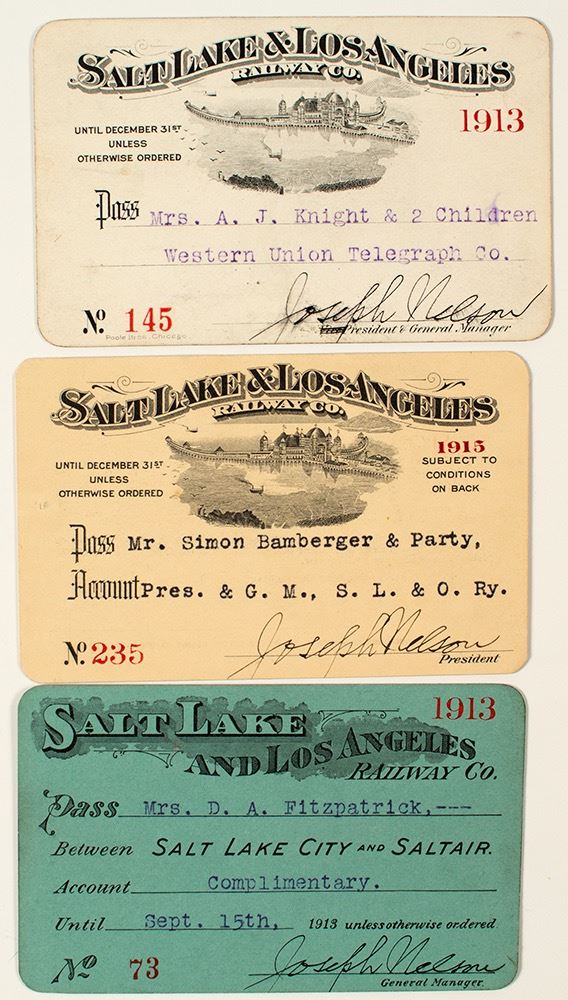 SALT LAKE & LOS ANGELES
RAILWAY CO.
UNTIL DECEMBER 31ST
UNLESS
OTHERWISE ORDERED
1913
Pass Mrs. A. J. Knight & 2 Children
Western Union Telegraph Co.
Joseph Nelson
Vice President & General Manager
No. 145
Poole Bros. Chicago
SALT LAKE & LOS ANGELES
RAILWAY CO.
UNTIL DECEMBER 31ST
UNLESS
OTHERWISE ORDERED
1915
SUBJECT TO
CONDITIONS
ON BACK
Pass Mr. Simon Bamberger & Party,
Account Pres. & G. M., S. L. & O. Ry.
Joseph Nelson
No. 235
President
SALT LAKE
AND LOS ANGELES
RAILWAY CO.
1913
Pass Mrs. D. A. Fitzpatrick,---
Between SALT LAKE CITY AND SALTAIR.
Account Complimentary.
Until Sept. 15th, 1913 unless otherwise ordered
No 73
Joseph Nelson
General Manager.